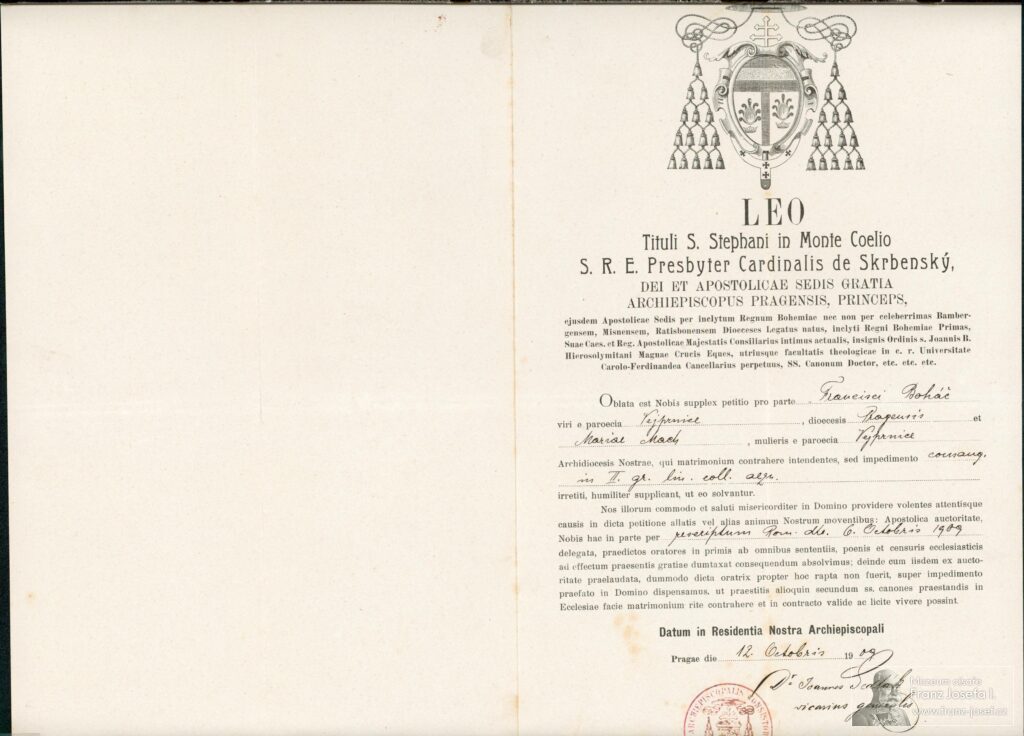 LEO
Tituli S. Stephani in Monte Coelio
S. R. E. Presbyter Cardinalis de Skrbenský,
DEI ET APOSTOLICAE SEDIS GRATIA
ARCHIEPISCOPUS PRAGENSIS, PRINCEPS,
ejusdem Apostolicae Sedis per inclytum Regnum Bohemiae nec non per celeberrimas Bamber-
gensem, Misnensem, Ratisbonensem Dioeceses Legatus natus, inclyti Regni Bohemiae Primas,
Suae Caes. et Reg. Apostolicae Majestatis Consiliarius intimus actualis, insignis Ordinis s. Joannis B.
Hierosolymitani Magnae Crucis Eques, utriusque facultatis theologicae in c. r. Universitate
Carolo-Ferdinandea Cancellarius perpetuus, SS. Canonum Doctor, etc. etc. etc.
Oblata est Nobis supplex petitio pro parte Francisci Boháč
viri e paroecia Vejprnice, dioecesis Pragensis et
Mariae Mach, mulieris e paroecia Vejprnice
Archidiocesis Nostrae, qui matrimonium contrahere intendentes, sed impedimento consang.
in II. gr. lin. coll. aequ.
irretiti, humiliter supplicant, ut eo solvantur.
Nos illorum commodo et saluti misericorditer in Domino providere volentes attentisque
causis in dicta petitione allatis vel alias animum Nostrum moventibus: Apostolica auctoritate,
Nobis hac in parte per rescriptum Rom. dto. 6. Octobris 1909
delegata, praedictos oratores in primis ab omnibus sententiis, poenis et censuris ecclesiasticis
ad effectum praesentis gratiae dumtaxat consequendum absolvimus; deinde cum iisdem ex aucto-
ritate praelaudata, dummodo dicta oratrix propter hoc rapta non fuerit, super impedimento
praefato in Domino dispensamus, ut praestitis alioquin secundum ss. canones praestandis in
Ecclesiae facie matrimonium rite contrahere et in contracto valide ac licite vivere possint.
Datum in Residentia Nostra Archiepiscopali
Pragae die 12. Octobris 1909
Dr Joannes Sedlák
vicarius generalis
ARCHIEPISCOPALIS CONSISTOR
Muzeum císaře
Franz Josefa I.
www.franz-josef.cz